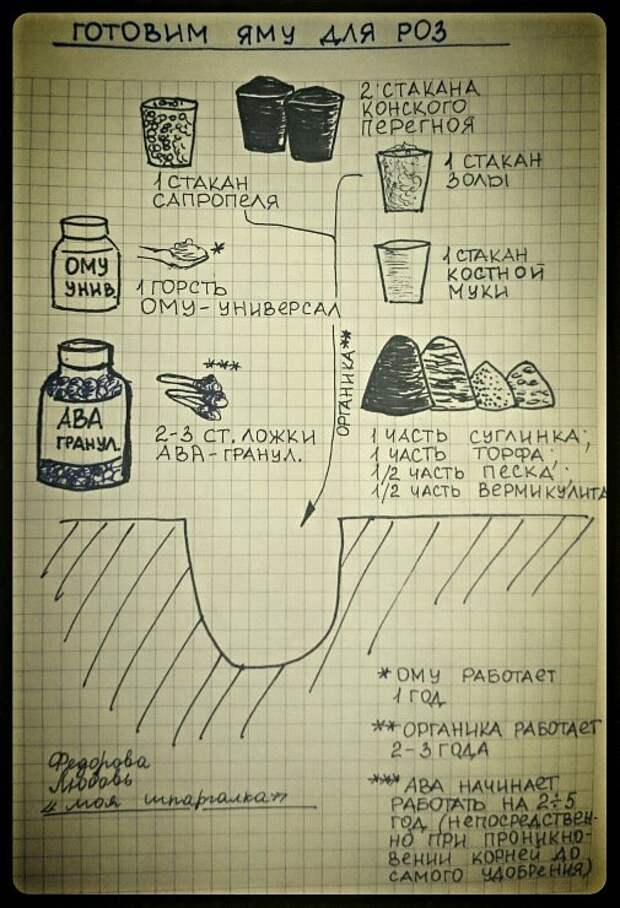 ГОТОВИМ ЯМУ ДЛЯ РОЗ
2 СТАКАНА
КОНСКОГО
ПЕРЕГНОЯ
1 СТАКАН
САПРОПЕЛЯ
1 СТАКАН
ЗОЛЫ
ОМУ
УНИВ.
*
1 ГОРСТЬ
ОМУ-УНИВЕРСАЛ
1 СТАКАН
КОСТНОЙ
МУКИ
ОРГАНИКА**
АВА
ГРАНУЛ.
***
2-3 СТ. ЛОЖКИ
АВА-ГРАНУЛ.
1 ЧАСТЬ СУГЛИНКА;
1 ЧАСТЬ ТОРФА;
1/2 ЧАСТЬ ПЕСКА;
1/2 ЧАСТЬ ВЕРМИКУЛИТА
* ОМУ РАБОТАЕТ
1 ГОД
** ОРГАНИКА РАБОТАЕТ
2-3 ГОДА
*** АВА НАЧИНАЕТ
РАБОТАТЬ НА 2÷5
ГОД (НЕПОСРЕДСТВЕН-
НО ПРИ ПРОНИКНО-
ВЕНИИ КОРНЕЙ ДО
САМОГО УДОБРЕНИЯ)
Федорова
Любовь
"моя шпаргалка"